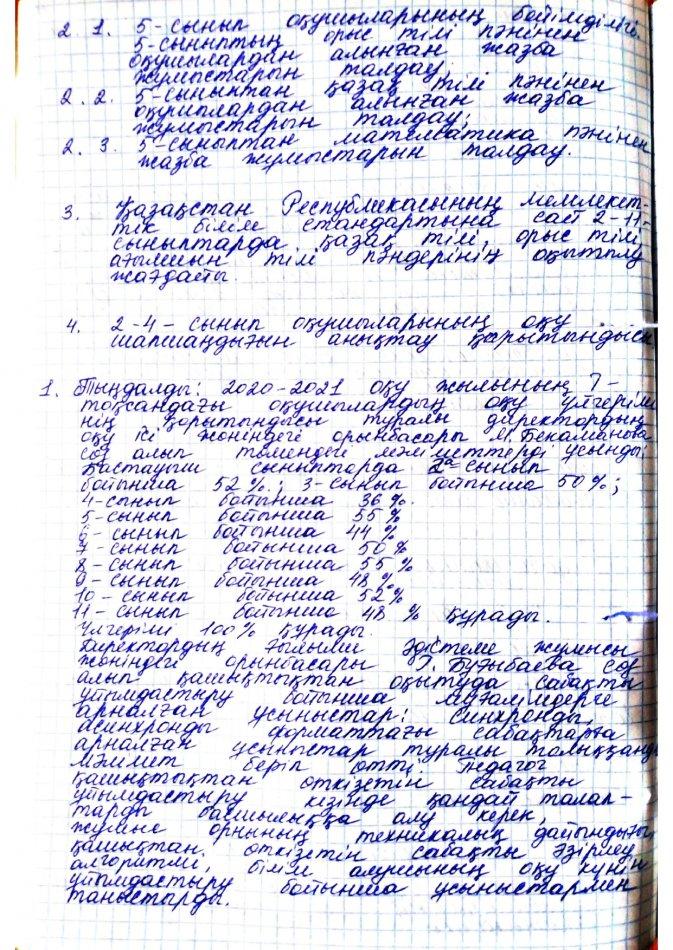 2. 1. 5-сынып оқушыларының бейімділігі.
5-сыныптың орыс тілі пәнінен
оқушылардан алынған жазба
жұмыстарын талдау;
2. 2. 5-сыныптан қазақ тілі пәнінен
оқушылардан алынған жазба
жұмыстарын талдау;
2. 3. 5-сыныптан математика пәнінен
жазба жұмыстарын талдау.
3. Қазақстан Республикасының мемлекет-
тік білім стандартына сай 2-11-
сыныптарда қазақ тілі, орыс тілі
ағылшын тілі пәндерінің оқытылу
жағдайы.
4. 2-4- сынып оқушыларының оқу
шапшаңдығын анықтау қорытындысы
1. Тыңдалды: 2020-2021 оқу жылының I-
тоқсандағы оқушылардың оқу үлгерімі
нің қорытындысы туралы директордың
оқу ісі жөніндегі орынбасары М. Бекаманова
сөз алып төмендегі мәліметтерді ұсынды:
Бастауыш сыныптарда 2ші сынып
бойынша 52%; 3-сынып бойынша 50%;
4-сынып бойынша 36%.
5-сынып бойынша 55%
6-сынып бойынша 44%
7-сынып бойынша 50%
8-сынып бойынша 55%
9-сынып бойынша 48%
10-сынып бойынша 52%
11-сынып бойынша 48% құрады.
Үлгерім 100% құрады.
Директордың ғылыми әдістеме жұмысы
жөніндегі орынбасары Бұғыбаева сөз
алып қашықтықтан оқытуда сабақты
ұйымдастыру бойынша мұғалімдерге
арналған ұсыныстар: Синхронды,
асинхронды форматтағы сабақтарға
арналған ұсыныстар туралы толыққанды
мәлімет беріп өтті. Педагог
қашықтықтан өткізетін сабақты
ұйымдастыру кезінде қандай талап-
тарды басшылыққа алу керек,
жұмыс орнының техникалық дайындығы,
қашықтан өткізетін сабақты әзірлеу
алгоритмі, білім алушының оқу күнін
ұйымдастыру бойынша ұсыныстармен
таныстырды.